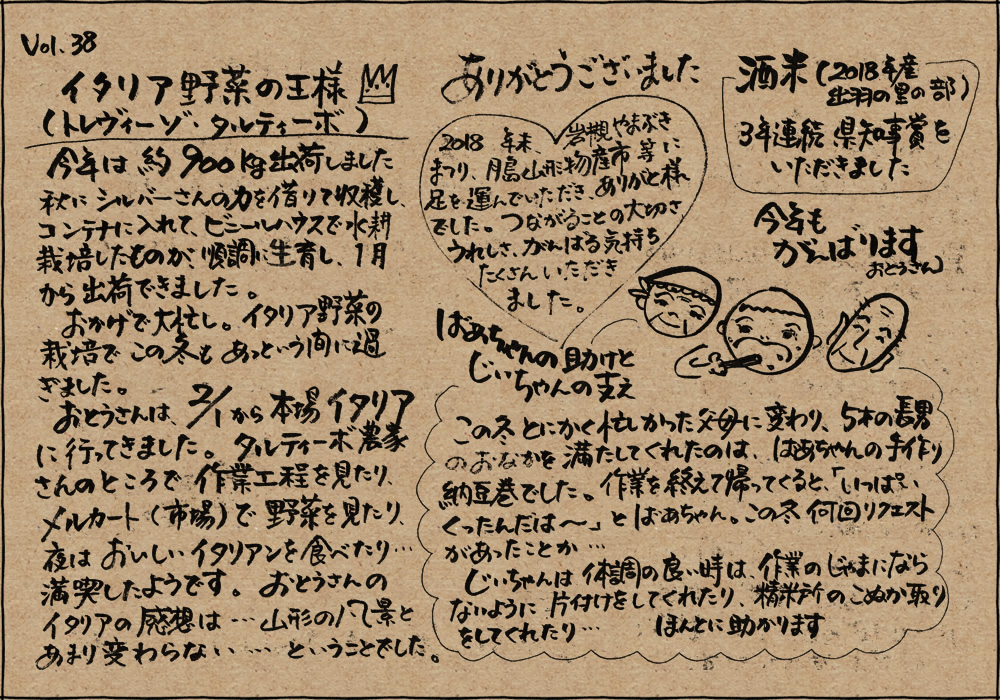 Vol. 38
イタリア野菜の王様
(トレヴィーゾ・タルティーボ)
今年は約900kg出荷しました
秋にシルバーさんの力を借りて収穫し、
コンテナに入れて、ビニールハウスで水耕
栽培したものが、順調に生育し、1月
から出荷できました。
おかげで大忙し。イタリア野菜の
栽培でこの冬もあっという間に過
ぎました。
おとうさんは、2/1から本場イタリア
に行ってきました。タルティーボ農家
さんのところで作業工程を見たり、
メルカート(市場)で野菜を見たり、
夜はおいしいイタリアンを食べたり…
満喫したようです。おとうさんの
イタリアの感想は…山形の風景と
あまり変わらない…ということでした。
ありがとうございました
2018年末、岩槻やまぶき
まつり、月島山形物産市等に
足を運んでいただき、ありがと様
でした。つながることの大切さ
うれしさ、がんばる気持ち
たくさんいただき
ました。
酒米(2018年産
出羽の里の部)
3年連続県知事賞を
いただきました
今年も
がんばります
おとうさん
ばあちゃんの助けと
じいちゃんの支え
この冬とにかく忙しかった父母に変わり、5才の長男
のおなかを満たしてくれたのは、ばあちゃんの手作り
納豆巻でした。作業を終えて帰ってくると、「いっぱい
くったんだは〜」とばあちゃん。この冬何回リクエスト
があったことか…
じいちゃんは体調の良い時は、作業のじゃまになら
ないように片付けをしてくれたり、精米所のこぬか取り
をしてくれたり… ほんとに助かります